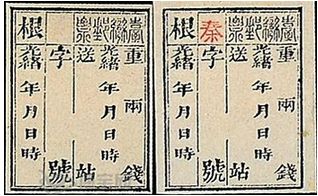 臺灣郵票
重 兩 錢
光緒 年 月 日 時
送 站
秦字 號
根 光緒 年 月 日 時
臺灣郵票
重 兩 錢
光緒 年 月 日 時
送 站
字 號
根 光緒 年 月 日 時